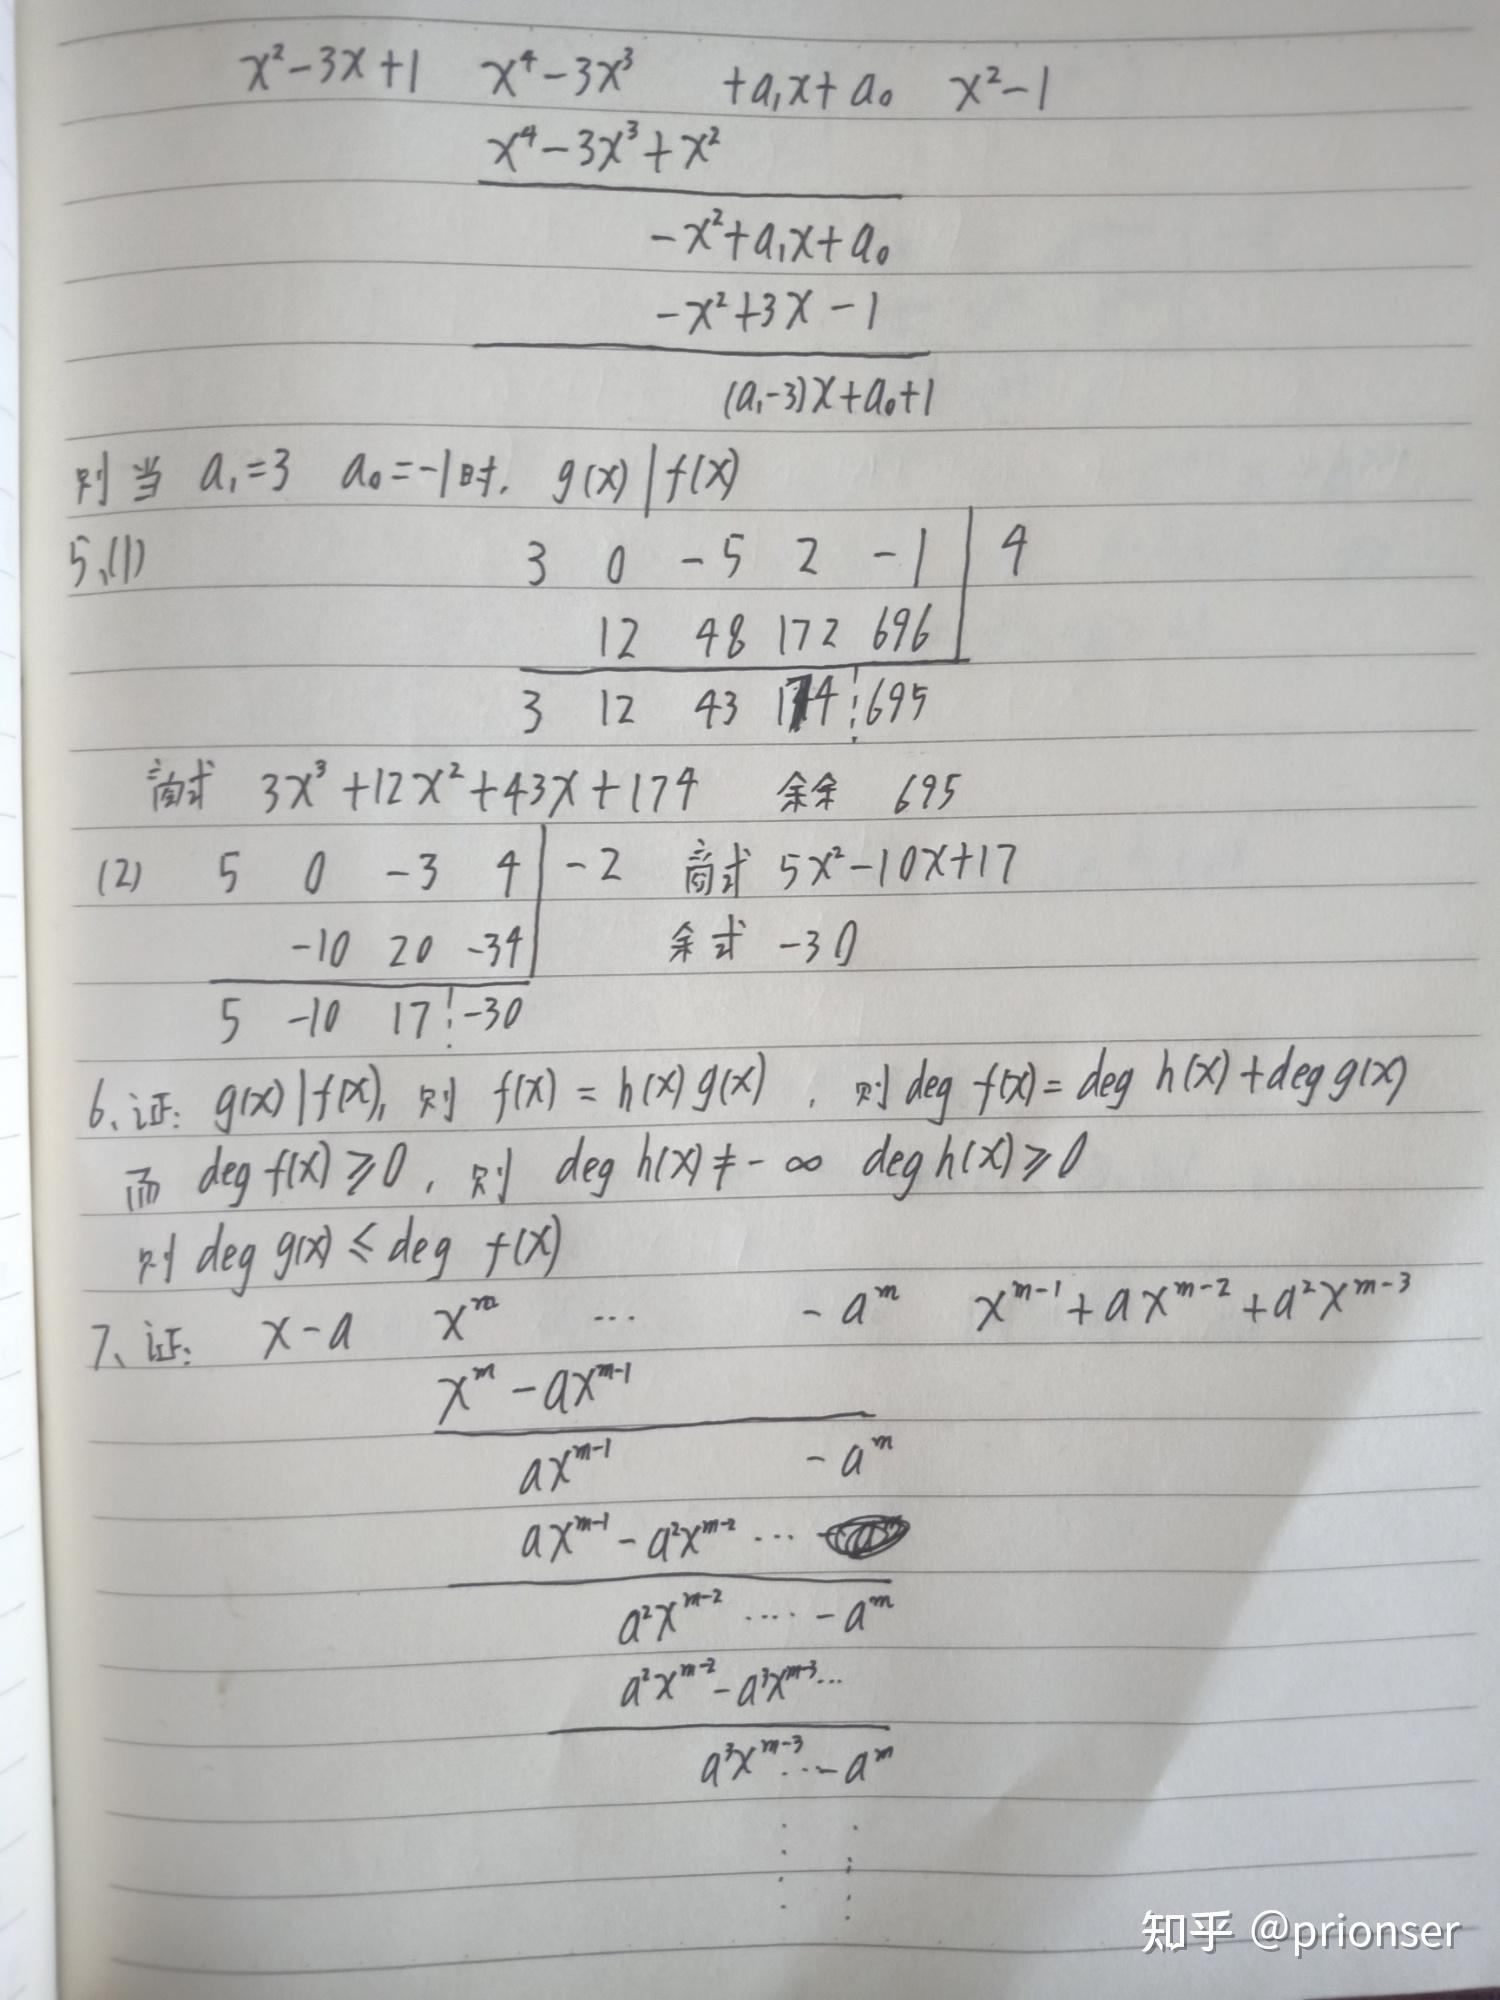 x²-3x+1 x⁴-3x³ +a₁x+a₀ x²-1
x⁴-3x³+x²
-x²+a₁x+a₀
-x²+3x-1
(a₁-3)x+a₀+1
则当 a₁=3 a₀=-1时. g(x)|f(x)
5.(1) 3 0 -5 2 -1 | 4
12 48 172 696
3 12 43 174 695
商式 3x³+12x²+43x+174 余余 695
(2) 5 0 -3 4 | -2 商式 5x²-10x+17
-10 20 -34 余式 -30
5 -10 17 -30
6、证: g(x)|f(x), 则 f(x)=h(x)g(x), 则 deg f(x)=deg h(x)+deg g(x)
而 deg f(x)≥0, 则 deg h(x)≠-∞ deg h(x)≥0
则 deg g(x)≤deg f(x)
7、证: x-a xᵐ ... -aᵐ xᵐ⁻¹+axᵐ⁻²+a²xᵐ⁻³
xᵐ-axᵐ⁻¹
axᵐ⁻¹ -aᵐ
axᵐ⁻¹-a²xᵐ⁻² ...
a²xᵐ⁻² .... -aᵐ
a²xᵐ⁻²-a³xᵐ⁻³...
a³xᵐ⁻³...-aᵐ
知乎 @prionser